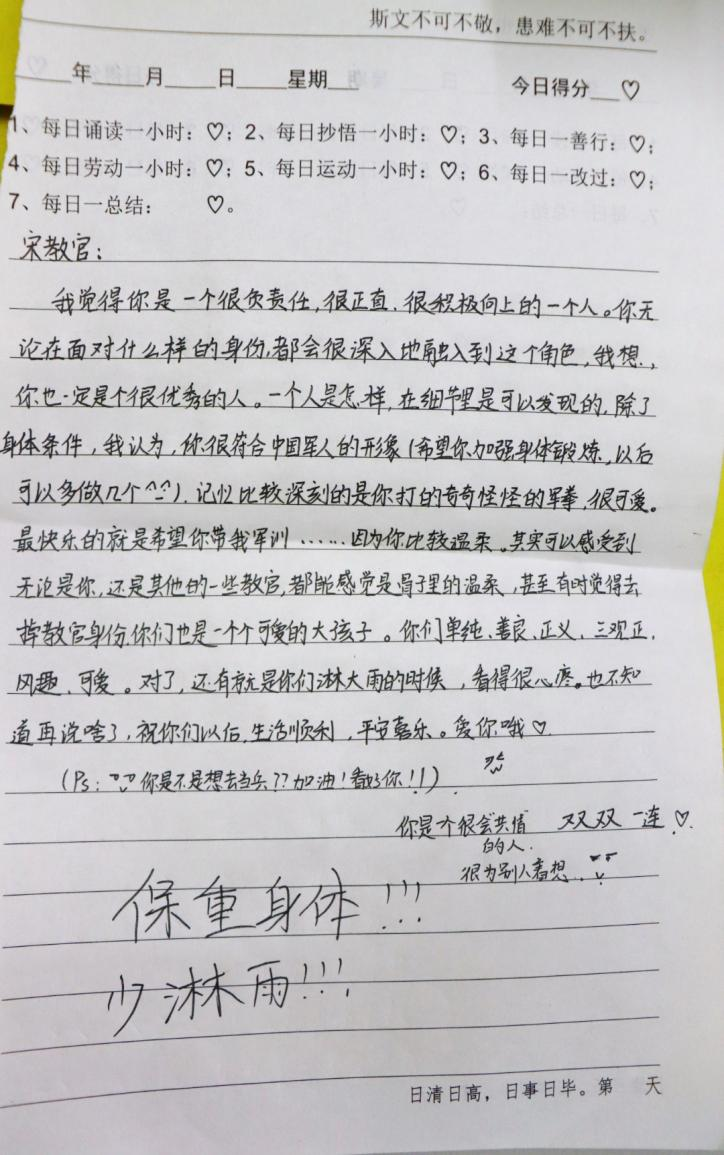 斯文不可不敬，患难不可不扶。
年 月 日 星期 今日得分 ♡
1、每日诵读一小时：♡；2、每日抄悟一小时：♡；3、每日一善行：♡；
4、每日劳动一小时：♡；5、每日运动一小时：♡；6、每日一改过：♡；
7、每日一总结： ♡。
宋教官：
我觉得你是一个很负责任，很正直、很积极向上的一个人。你无
论在面对什么样的身份，都会很深入地融入到这个角色，我想，
你也一定是个很优秀的人。一个人是怎样，在细节里是可以发现的，除了
身体条件，我认为，你很符合中国军人的形象（希望你加强身体锻炼，以后
可以多做几个^_^）。记忆比较深刻的是你打的奇奇怪怪的军拳，很可爱。
最快乐的就是希望你带我军训……因为你比较温柔。其实可以感受到
无论是你，还是其他的一些教官，都能感觉是骨子里的温柔，甚至有时觉得去
掉教官身份，你们也是一个个可爱的大孩子。你们单纯、善良、正义、三观正、
风趣、可爱。对了，还有就是你们淋大雨的时候，看得很心疼。也不知
道再说啥了，祝你们以后，生活顺利，平安喜乐。爱你哦♡
（Ps：你是不是想去当兵？？加油！看好你！！）
你是个很会共情 双双双 一连 ♡
的人.
很为别人着想.
保重身体！！！
少淋雨！！！
日清日高，日事日毕。第 天